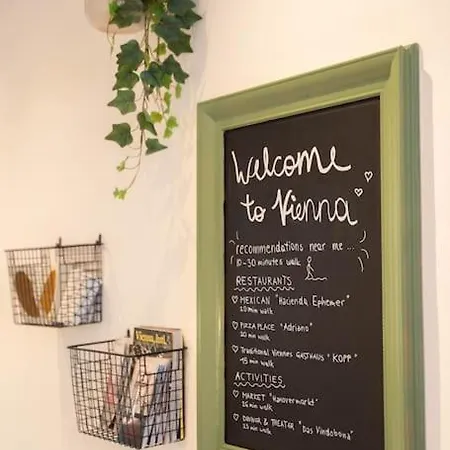 Welcome
to Vienna
recommendations near me ...
10-30 minutes walk
RESTAURANTS
MEXICAN "Hacienda Ephemer"
10 min walk
PIZZA PLACE "Adriano"
10 min walk
Traditional Viennes GASTHAUS "KOPP"
15 min walk
ACTIVITIES
MARKET "Hanovermarkt"
15 min walk
DINNER & THEATER "Das Vindobona"
13 min walk